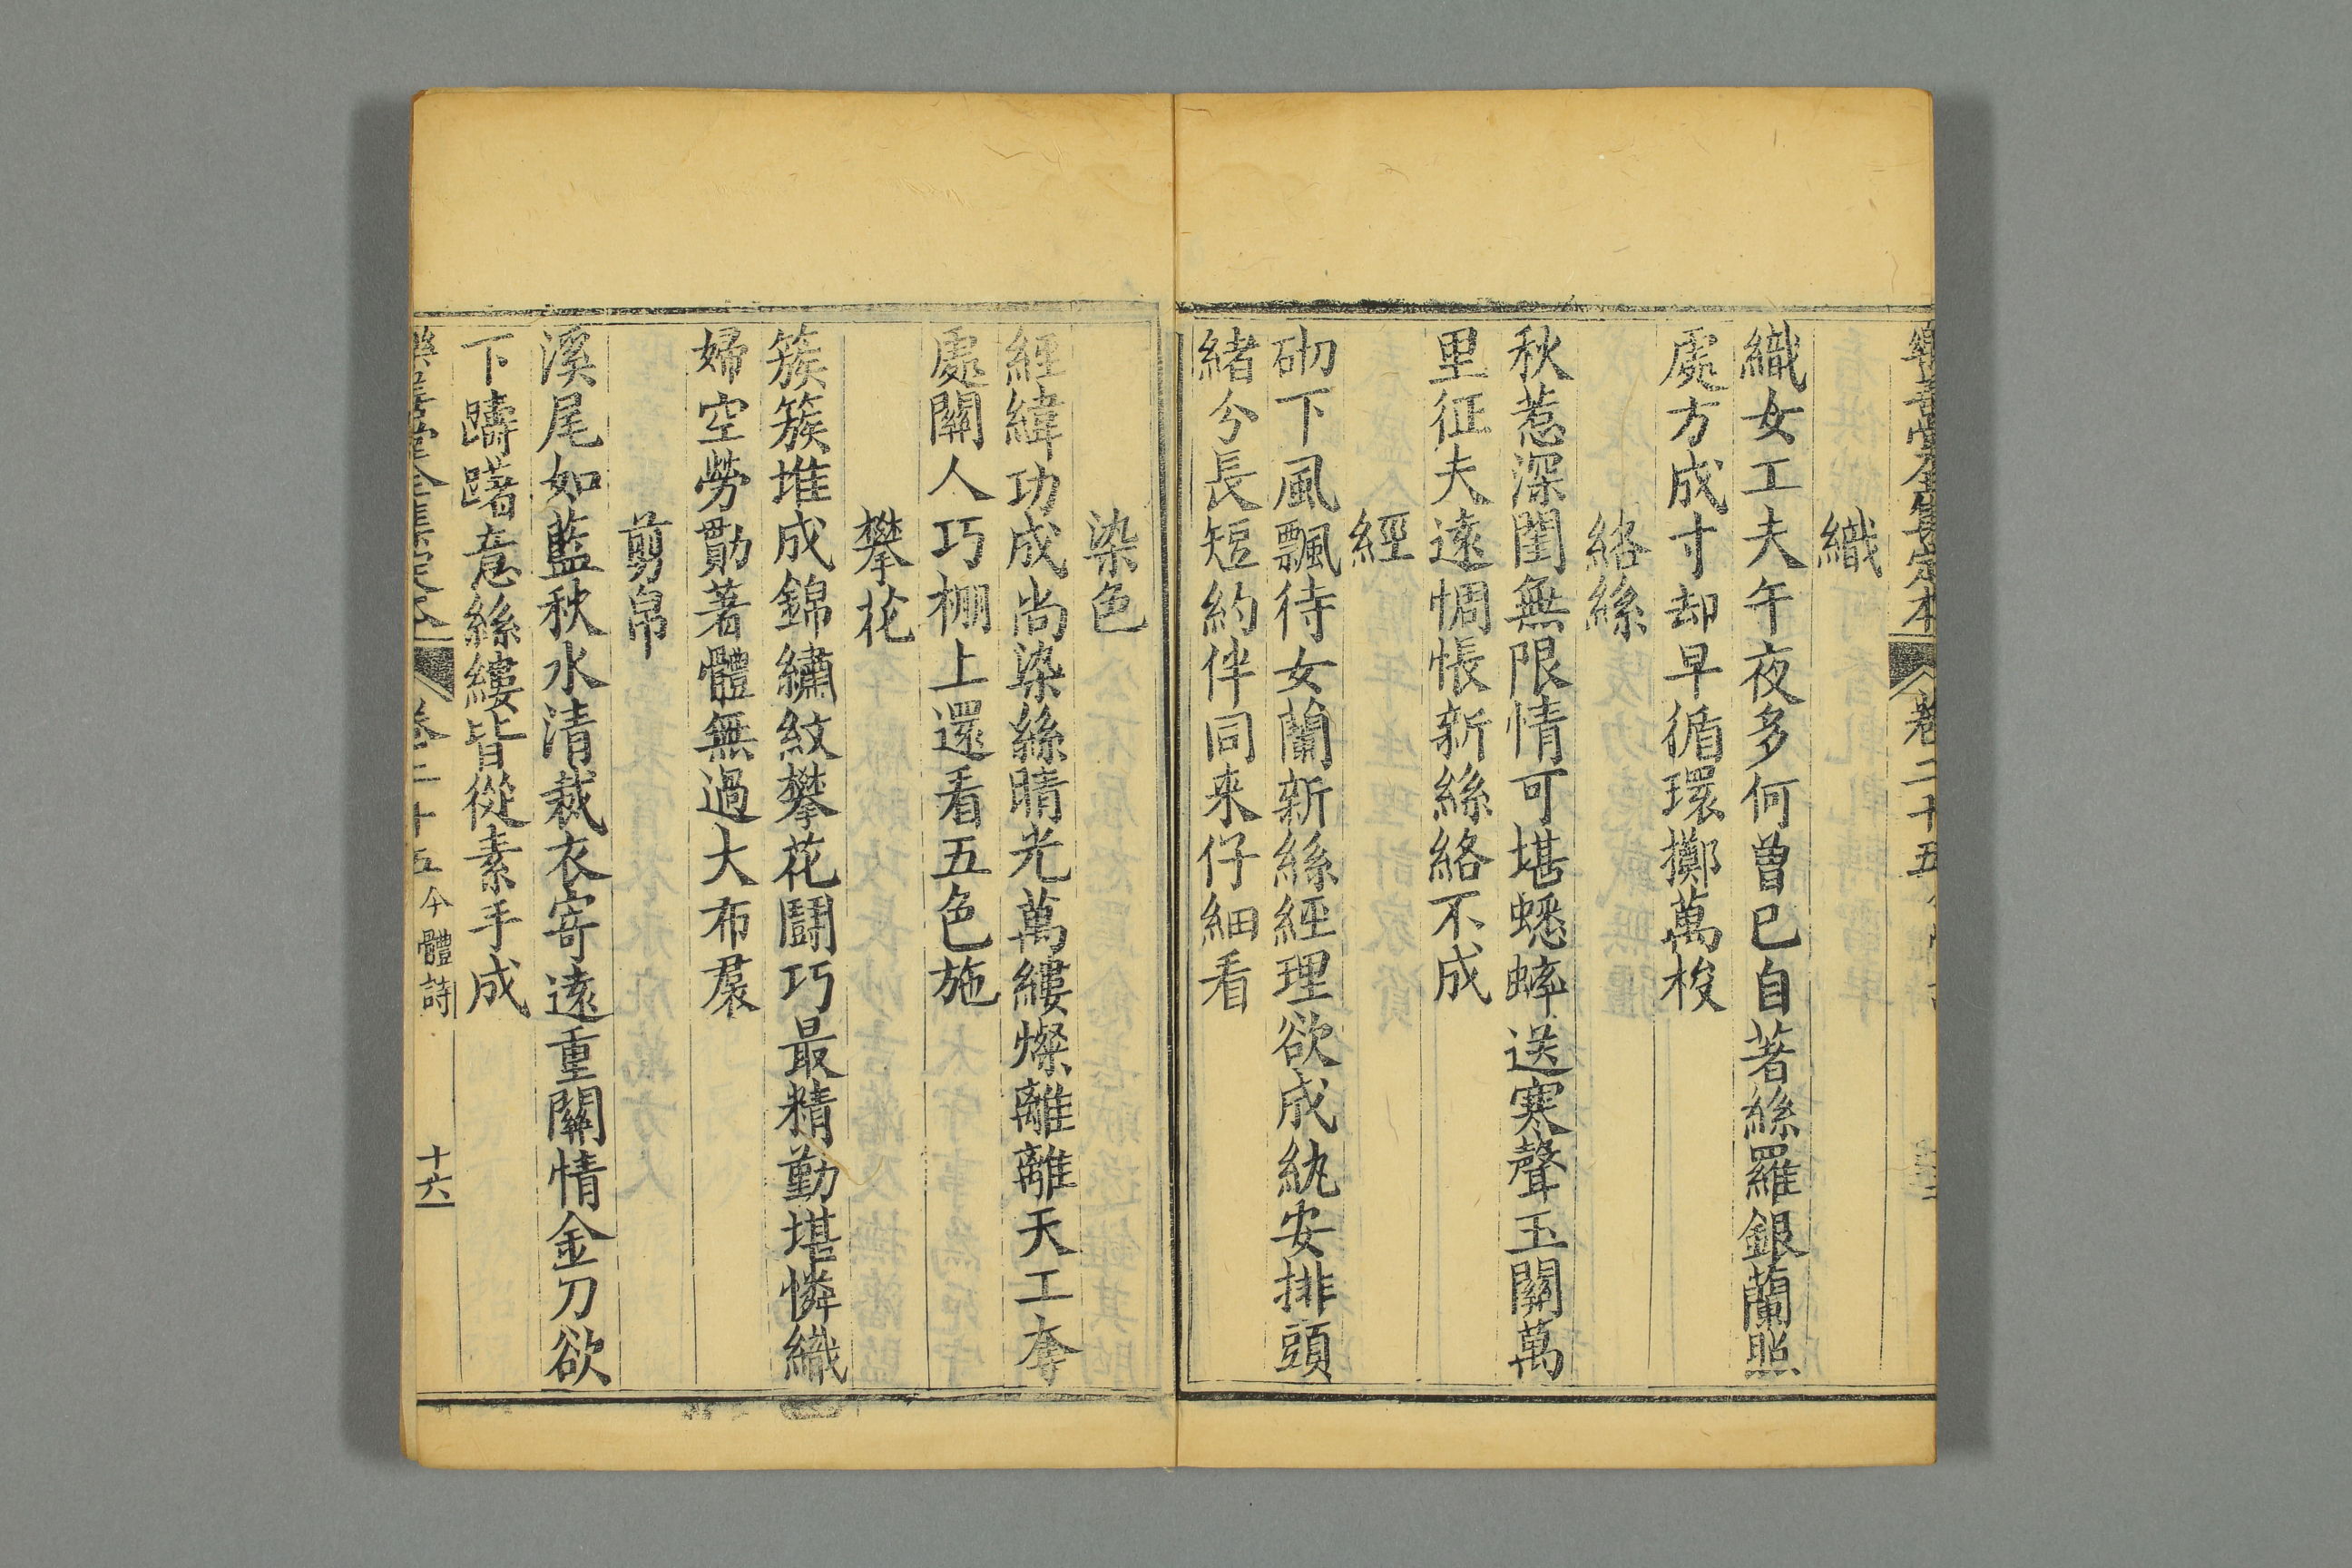 樂善堂全集定本 卷二十五
織
織女工夫午夜多何曾已自著絲羅銀蘭照
處方成寸却早循環擲萬梭
絡絲
秋惹深閨無限情可堪蟋蟀送寒聲玉關萬
里征夫遠惆悵新絲絡不成
經
砌下風飄待女蘭新絲經理欲成紈安排頭
緒分長短約伴同来仔細看
染色
經緯功成尚染絲晴光萬縷燦離離天工奪
處關人巧棚上還看五色施
攀花
簇簇堆成錦繡紋攀花鬪巧最精勤堪憐織
婦空勞勩著體無過大布裠
剪帛
溪尾如藍秋水清裁衣寄遠重關情金刀欲
下躊躇意絲縷皆從素手成
樂善堂全集定本 卷二十五 今體詩 十六